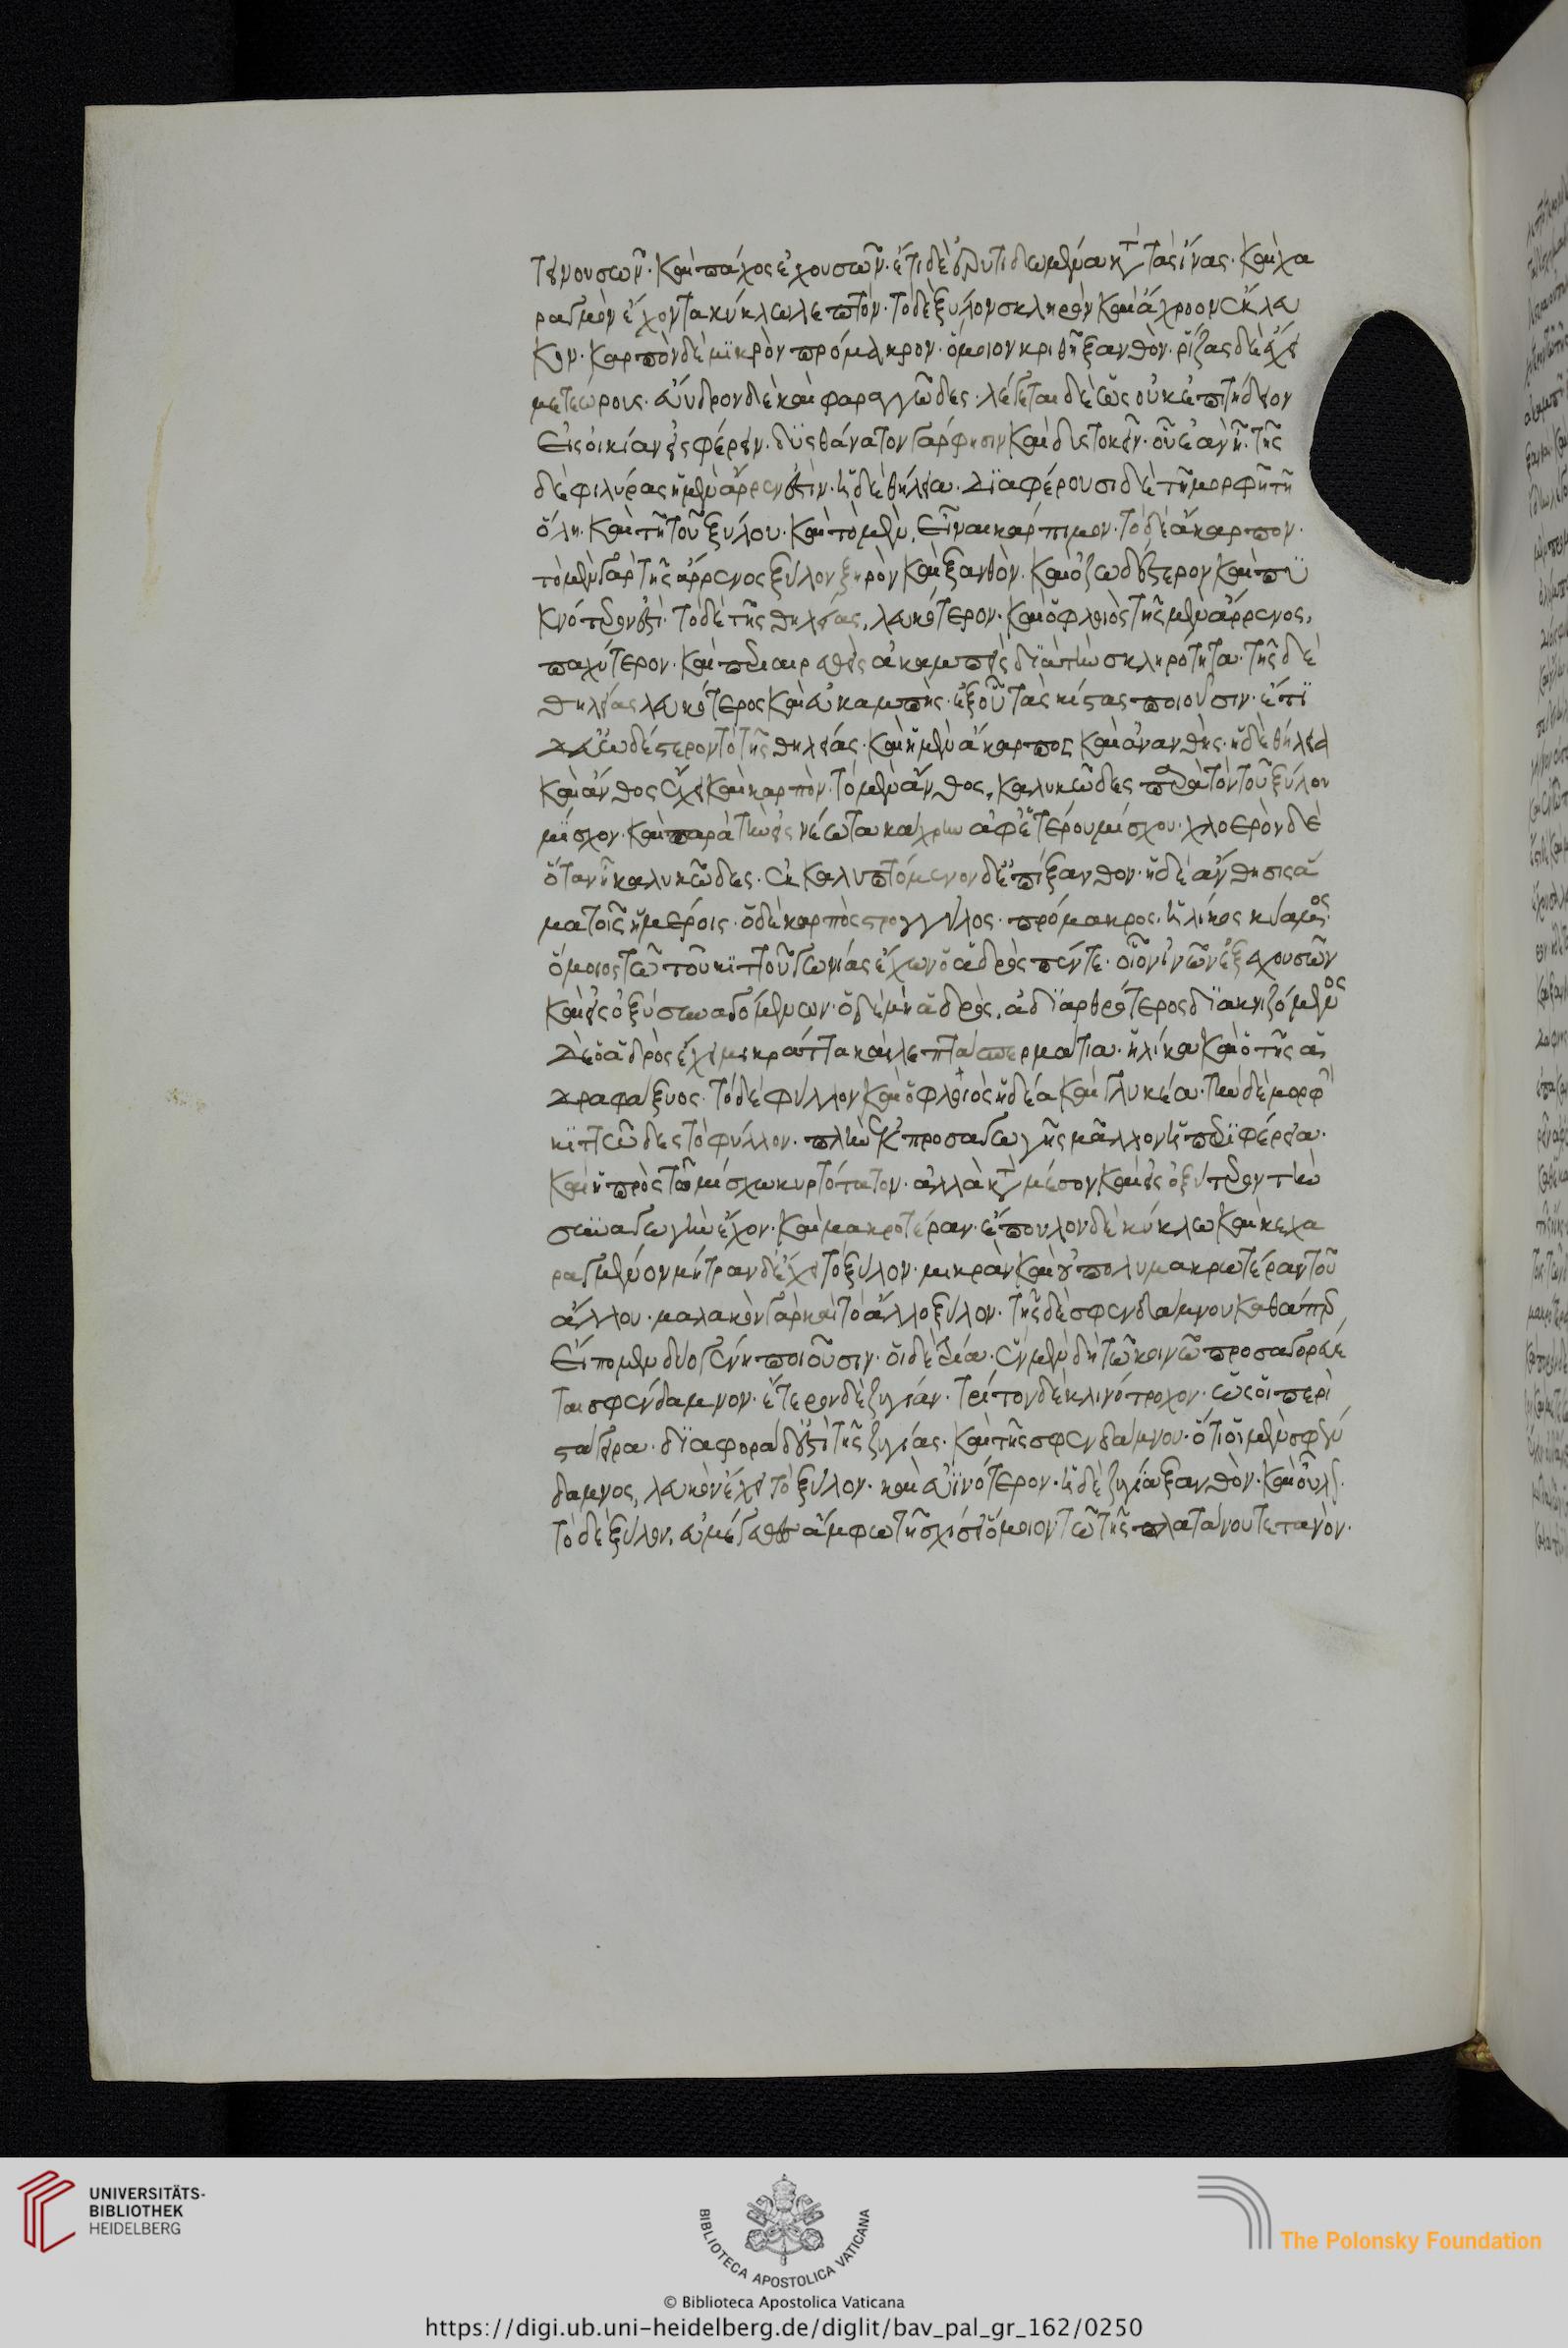 τεινουσῶν· καὶ πάχος ἐχουσῶν· ἔτι δὲ ῥυτιδωμένα κατὰ τὰς ἵνας· καὶ χα
ραγμὸν ἔχοντα κύκλω λεπτόν· τὸ δὲ ξύλον σκληρὸν καὶ ἄχροον ἔκλευ
κον· καρπὸν δὲ μικρὸν πρόμακρον· ὅμοιον κριθῆ ξανθὸν· ῥίζας δὲ ἔχει
μετεώρους· ἔνυδρον δὲ καὶ φαραγγῶδες· λέγεται δὲ ὡς οὐκ ἐπιτήδειον
εἰς οἰκίαν εἰσφέρειν· δυσθάνατον γάρ φησιν καὶ δυστοκεῖν· οὗ ἐὰν ἦ· τῆς
δὲ φιλύρας ἡ μὲν ἄρρεν ἐστὶν· ἡ δὲ θήλεια· διαφέρουσι δὲ τῆ μορφῆ τῆ
ὅλη· καὶ τῆ τοῦ ξύλου· καὶ τὸ μὲν, εἶναι κάρπιμον· τὸ δὲ ἄκαρπον·
τὸ μὲν γὰρ τῆς ἄρρενος ξύλον ξηρὸν καὶ ξανθὸν· καὶ ὀζωδέστερον καὶ πυ
κνότερον ἐστὶ· τὸ δὲ τῆς θηλείας, λευκότερον· καὶ ὁ φλοιὸς τῆς μὲν ἄρρενος,
παχύτερον· καὶ περιαιρεθεὶς ἀκαμπεὶς διὰ τὴν σκληρότητα· τῆς δὲ
θηλείας λευκότερος καὶ εὐκαμπὴς· ἐξ οὗ τὰς κίστας ποιοῦσιν· ἐπὶ
εὐωδέστερον τὸ τῆς θηλείας· καὶ ἡ μὲν ἄκαρπος καὶ ἀνανθὴς· ἡ δὲ θήλεια
καὶ ἄνθος ἔχει καὶ καρπὸν· τὸ μὲν ἄνθος, καλυκῶδες παρὰ τὸν τοῦ ξύλου
μίσχον· καὶ παρὰ τὴν εἰς νέωτα κάχρυν ἀφ' ἑτέρου μίσχου· χλοερὸν δὲ
ὅταν ἦ καλυκῶδες· ἐκκαλυπτόμενον δὲ ἐπίξανθον· ἡ δὲ ἄνθησις ἅ
μα τοῖς ἡμέροις· ὁ δὲ καρπὸς στρογγύλος· πρόμακρος· ἡλίκος κύαμος·
ὅμοιος τῶ τοῦ κιττοῦ γωνίας ἔχων ὁ ἁδρὸς πέντε· οἷον ἰνῶν ἐξεχουσῶν
καὶ εἰς ὀξὺ συναγομένων· ὁ δὲ μὴ ἁδρὸς, ἀδιαρθρότερος διακνιζόμενος
δὲ ὁ ἁδρὸς ἔχει μικρά ττα καὶ λεπτὰ σπερμάτια· ἡλίκα καὶ ὁ τῆς ἀ
δραφάξυος· τὸ δὲ φύλλον καὶ ὁ φλοιὸς ἡδέα καὶ γλυκέα· τὴν δὲ μορφὴν
κιττῶδες τὸ φύλλον· πλὴν ἐκ προσαγωγῆς μᾶλλον ἡ περιφέρεια·
καὶ ἡ πρὸς τῶ μίσχω κυρτότατον· ἀλλὰ κατὰ μέσον καὶ εἰς ὀξύτερον τὴν
συναγωγὴν ἔχον· καὶ μακροτέραν· ἔπουλον δὲ κύκλω καὶ κεχα
ραγμένον μήτραν δὲ ἔχει τὸ ξύλον· μικρὰν καὶ οὐ πολὺ μακρωτέραν τοῦ
ἄλλου· μαλακὸν γὰρ καὶ τὸ ἄλλο ξύλον· τῆς δὲ σφενδάμνου καθάπερ
εἴπομεν δύο γένη ποιοῦσιν· οἱ δὲ τρία· ἓν μὲν δὴ τῶ κοινῶ προσαγορεύε
ται σφένδαμνον· ἕτερον δὲ ζυγίαν· τρίτον δὲ κλινότροχον· ὡς οἱ περὶ
στάγιρα· διαφορὰ δ' ἐστὶ τῆς ζυγίας· καὶ τῆς σφενδάμνου· ὅτι οἱ μὲν σφέν
δαμνος, λευκὸν ἔχει τὸ ξύλον· καὶ εὐινότερον· ἡ δὲ ζυγία ξανθὸν· καὶ οὖλον
τὸ δὲ ξύλον, εὐμέγεθες ἄμφω τῆ σχίσει ὅμοιον τῶ τῆς πλατάνου τετανὸν·
UNIVERSITÄTS-
BIBLIOTHEK
HEIDELBERG
BIBLIOTECA APOSTOLICA VATICANA
The Polonsky Foundation
© Biblioteca Apostolica Vaticana
https://digi.ub.uni-heidelberg.de/diglit/bav_pal_gr_162/0250